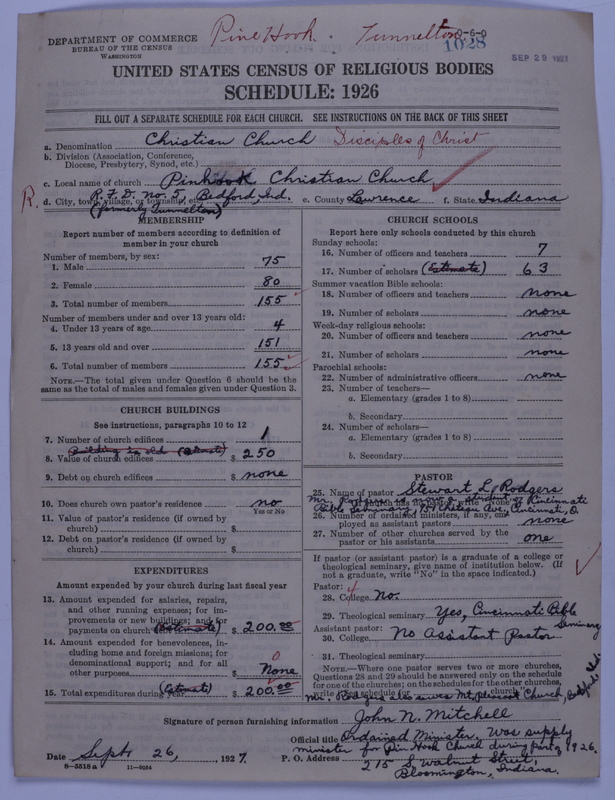 Pine Hook - Tunnelton
DEPARTMENT OF COMMERCE
BUREAU OF THE CENSUS
WASHINGTON
0-6-0
1028
SEP 29 1927
UNITED STATES CENSUS OF RELIGIOUS BODIES
SCHEDULE: 1926
FILL OUT A SEPARATE SCHEDULE FOR EACH CHURCH. SEE INSTRUCTIONS ON THE BACK OF THIS SHEET
a. Denomination Christian Church Disciples of Christ
b. Division (Association, Conference, Diocese, Presbytery, Synod, etc.)
c. Local name of church Pinhook Christian Church
R. d. City, town, village, or township, etc. R.F.D. No. 5 Bedford, Ind. e. County Lawrence f. State Indiana
(formerly Tunnelton)
MEMBERSHIP
Report number of members according to definition of member in your church
Number of members, by sex:
1. Male 75
2. Female 80
3. Total number of members 155
Number of members under and over 13 years old:
4. Under 13 years of age 4
5. 13 years old and over 151
6. Total number of members 155
NOTE.—The total given under Question 6 should be the same as the total of males and females given under Question 3.
CHURCH BUILDINGS
See instructions, paragraphs 10 to 12
7. Number of church edifices 1
Building is old (Estimate)
8. Value of church edifices $ 250
9. Debt on church edifices $ none
10. Does church own pastor's residence no
Yes or No
11. Value of pastor's residence (if owned by church) $
12. Debt on pastor's residence (if owned by church) $
EXPENDITURES
Amount expended by your church during last fiscal year
13. Amount expended for salaries, repairs, and other running expenses; for improvements or new buildings; and for payments on church (Estimate) $ 200.00
14. Amount expended for benevolences, including home and foreign missions; for denominational support; and for all other purposes $ None 0
15. Total expenditures during year (Estimate) $ 200.00
CHURCH SCHOOLS
Report here only schools conducted by this church
Sunday schools:
16. Number of officers and teachers 7
17. Number of scholars (Estimate) 63
Summer vacation Bible schools:
18. Number of officers and teachers none
19. Number of scholars none
Week-day religious schools:
20. Number of officers and teachers none
21. Number of scholars none
Parochial schools:
22. Number of administrative officers none
23. Number of teachers—
a. Elementary (grades 1 to 8)
b. Secondary
24. Number of scholars—
a. Elementary (grades 1 to 8)
b. Secondary
PASTOR
25. Name of pastor Stewart L. Rodgers
Mr. Rodgers is now a student of Cincinnati
Bible Seminary, Chateau Ave, Cincinnati, O.
26. Number of ordained ministers, if any, employed as assistant pastors none
27. Number of other churches served by the pastor or his assistants one
If pastor (or assistant pastor) is a graduate of a college or theological seminary, give name of institution below. (If not a graduate, write "No" in the space indicated.)
Pastor:
28. College No.
29. Theological seminary Yes, Cincinnati Bible Seminary
Assistant pastor:
30. College No Assistant Pastor
31. Theological seminary
NOTE.—Where one pastor serves two or more churches, Questions 28 and 29 should be answered only on the schedule for one of the churches; on the schedules for the other churches, write
Mr. Rodgers also serves Mt. Pleasant Church, Bedford, Ind.
Signature of person furnishing information John N. Mitchell
Official title Ordained Minister. Was supply
minister for Pin Hook Church during part of 1926.
Date Sept 26, 1927. P. O. Address 215 S. Walnut Street,
Bloomington, Indiana.
8-5518 a 11-9054